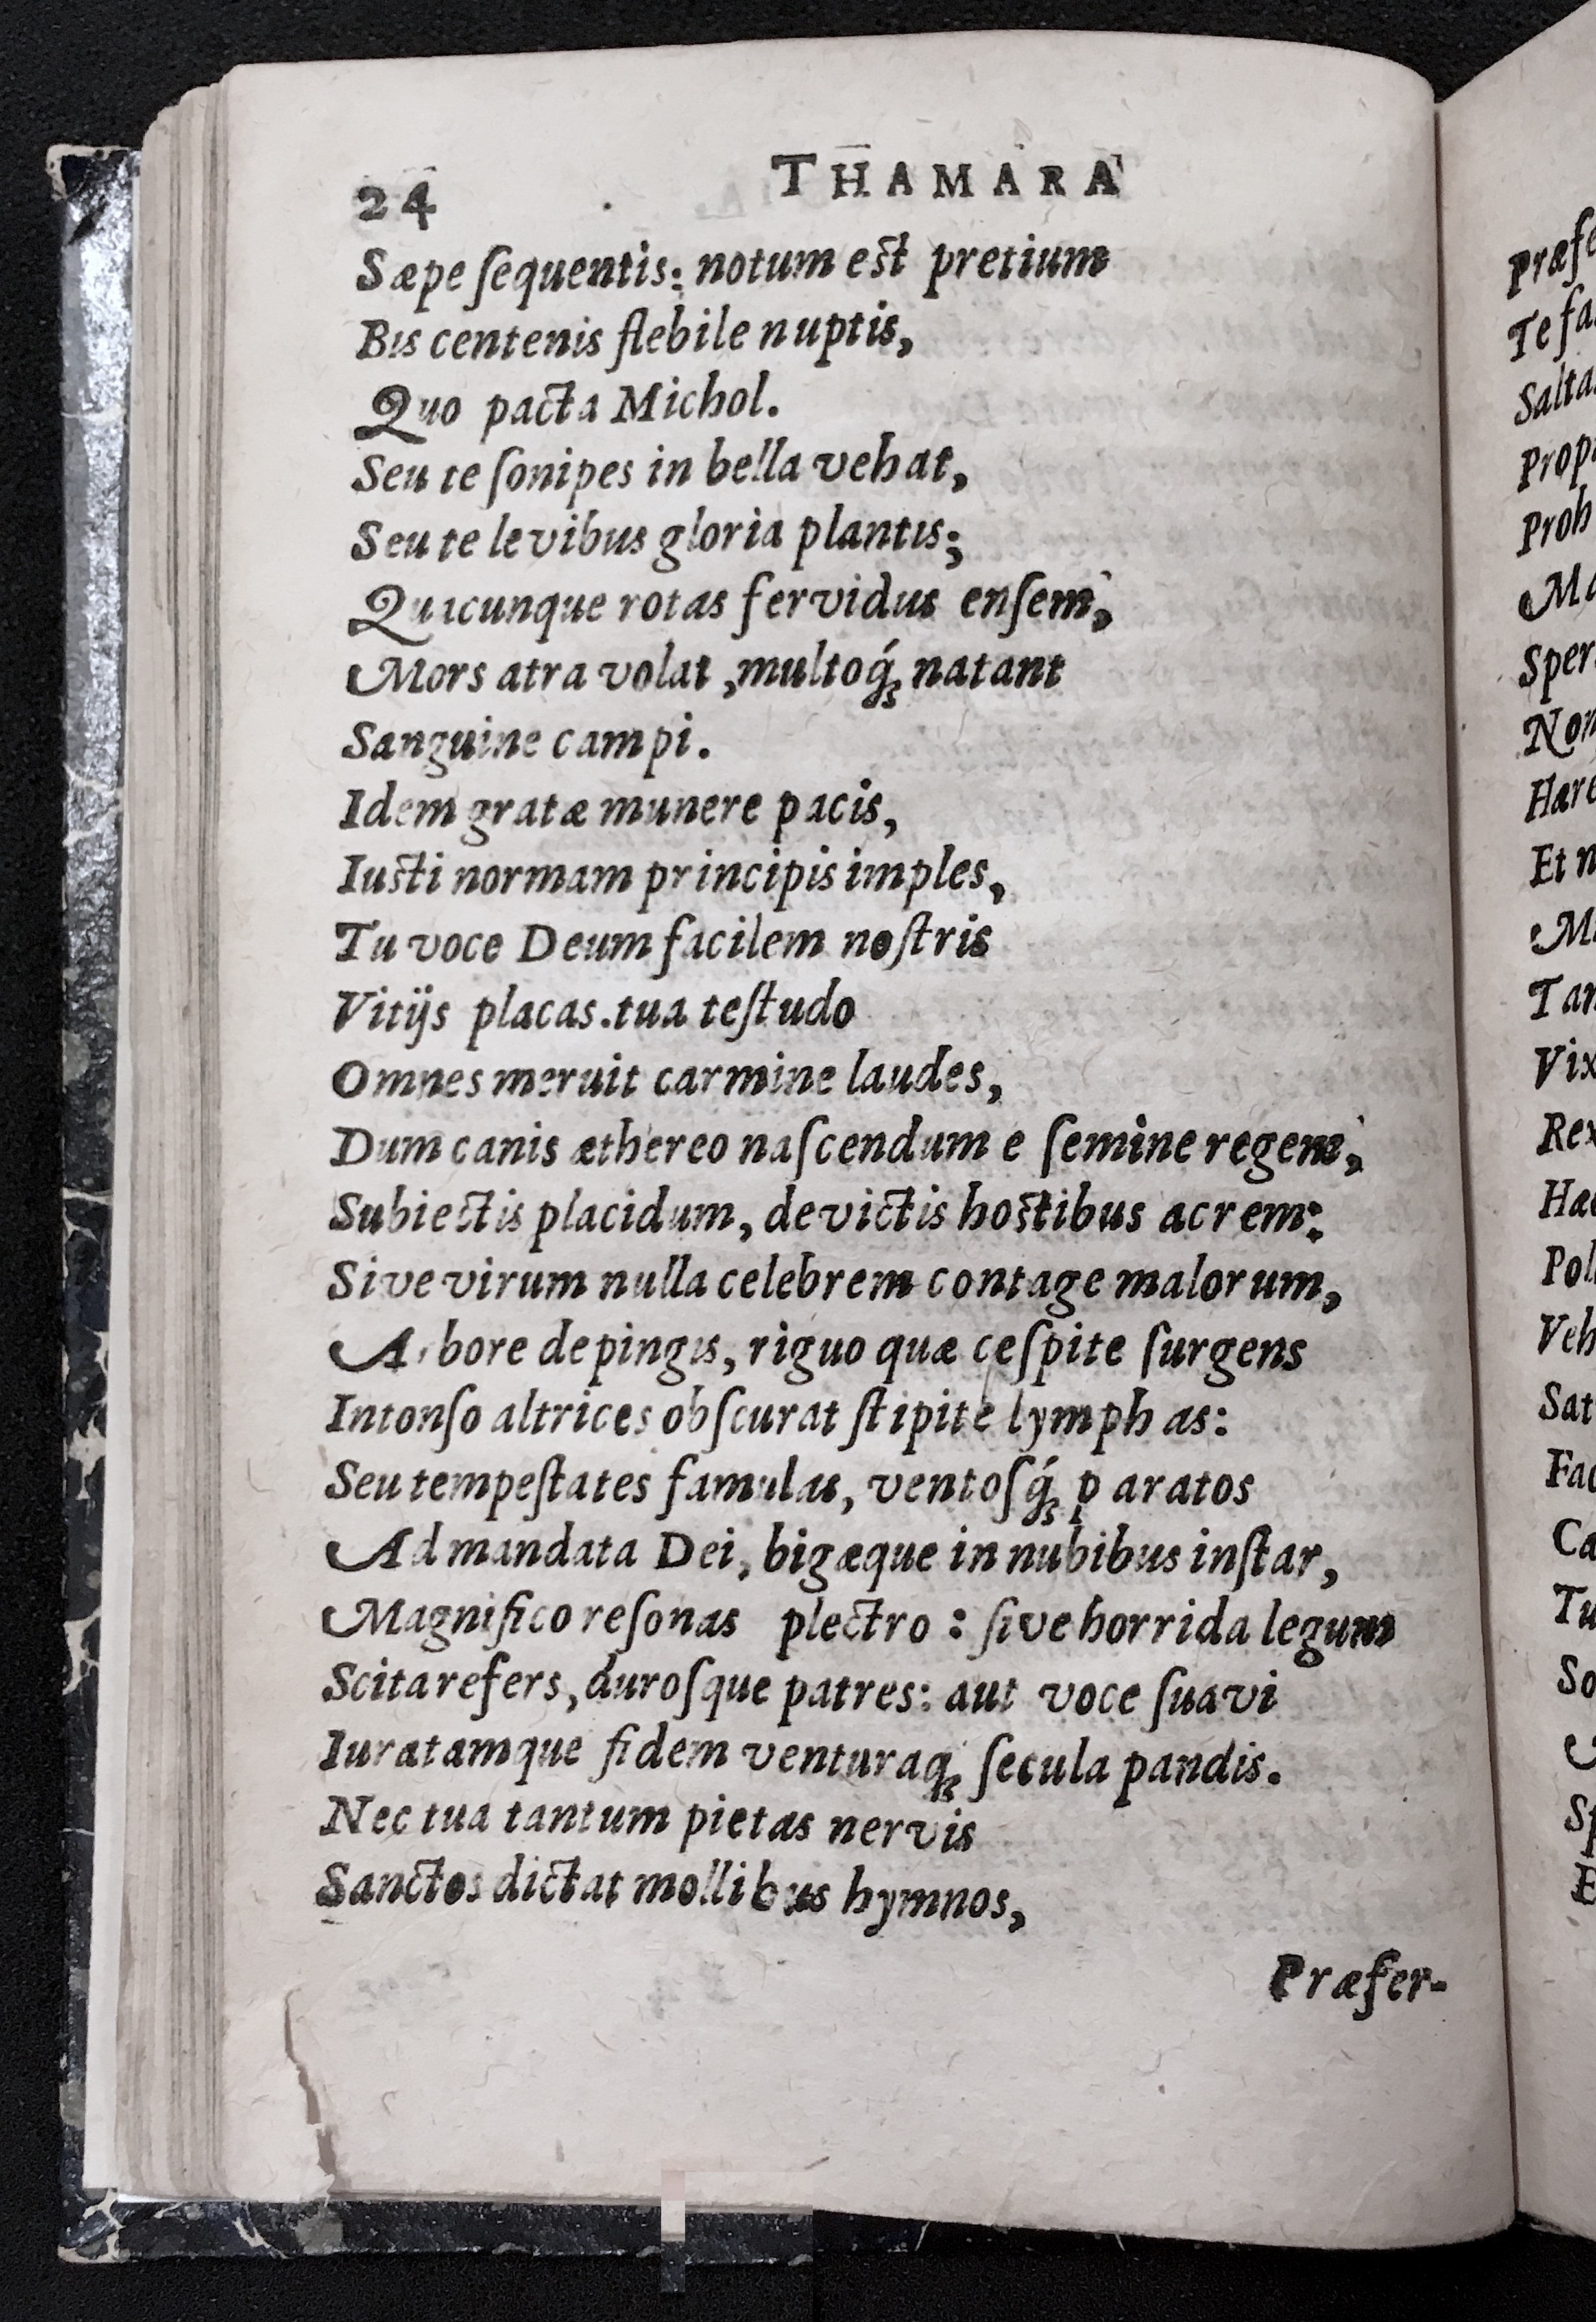 24 THAMARA
Sæpe ſequentis: notum est pretium
Bis centenis flebile nuptis,
Quo pacta Michol.
Seu te ſonipes in bella vehat,
Seu te levibus gloria plantis;
Quicunque rotas fervidus enſem,
Mors atra volat, multoq́ꝫ natant
Sanguine campi.
Idem gratæ munere pacis,
Iusti normam principis imples,
Tu voce Deum facilem noſtris
Vitijs placas. tua teſtudo
Omnes meruit carmine laudes,
Dum canis æthereo naſcendum e ſemine regem,
Subiectis placidum, devictis hostibus acrem:
Sive virum nulla celebrem contage malorum,
Arbore depingis, riguo quæ ceſpite ſurgens
Intonſo altrices obſcurat ſtipite lymphas:
Seu tempeſtates famulas, ventoſq́ꝫ paratos
Ad mandata Dei, bigæque in nubibus inſtar,
Magnifico reſonas plectro: ſive horrida legum
Scita refers, duroſque patres: aut voce ſuavi
Iuratamque fidem venturaqꝫ ſecula pandis.
Nec tua tantum pietas nervis
Sanctos dictat mollibus hymnos,
Præfer-
Præfe
Te fa
Salta
Prop
Proh
Sper
Non
Hære
Et n
Tan
Vix
Rex
Pol
Veh
Sat
Fac
Ca
Tu
So
Sp
E